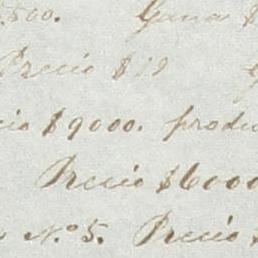 .500. Gana $
Precio $19
cio $9000. produc
Precio $6000
N.º 5. Precio $